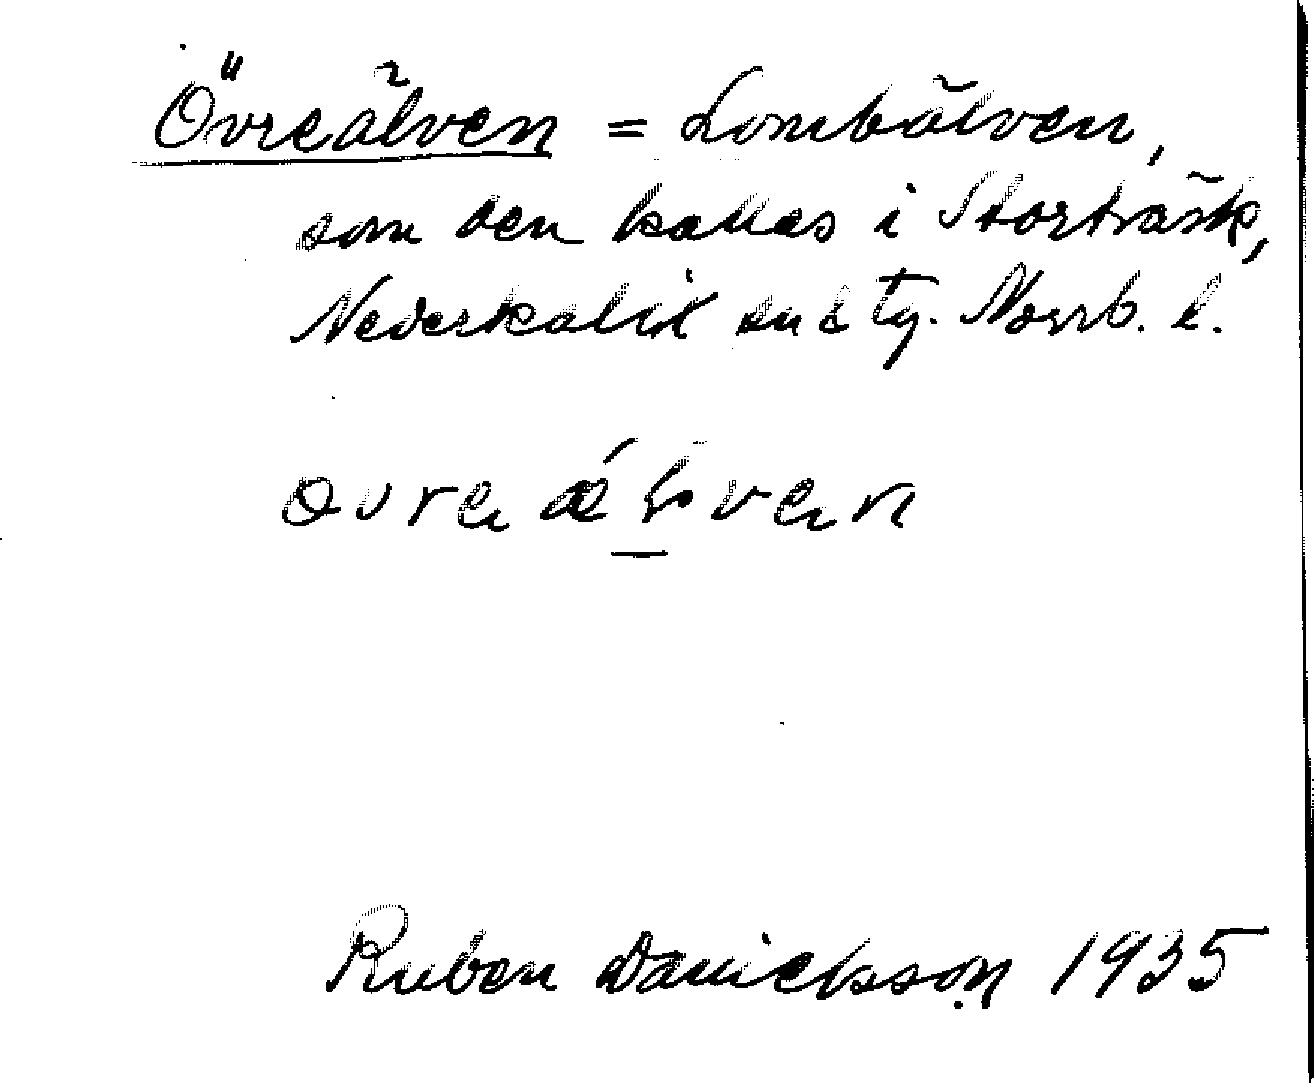 Övreälven = Lombälven,
som den kallas i Storträsk,
Nederkalix sn & tg. Norrb. l.
Ruben Danielsson 1935